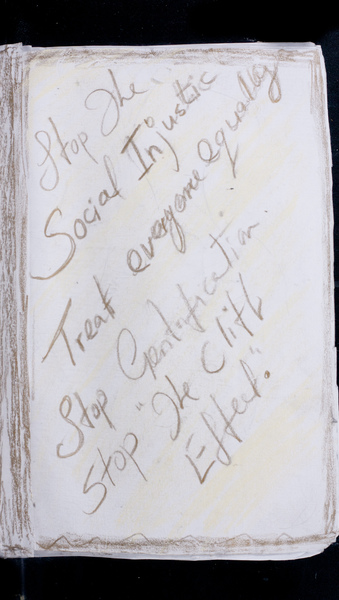 Stop The
Social Injustic
Treat everyone equally
Stop Gentrification.
Stop "The Cliff
Effect."